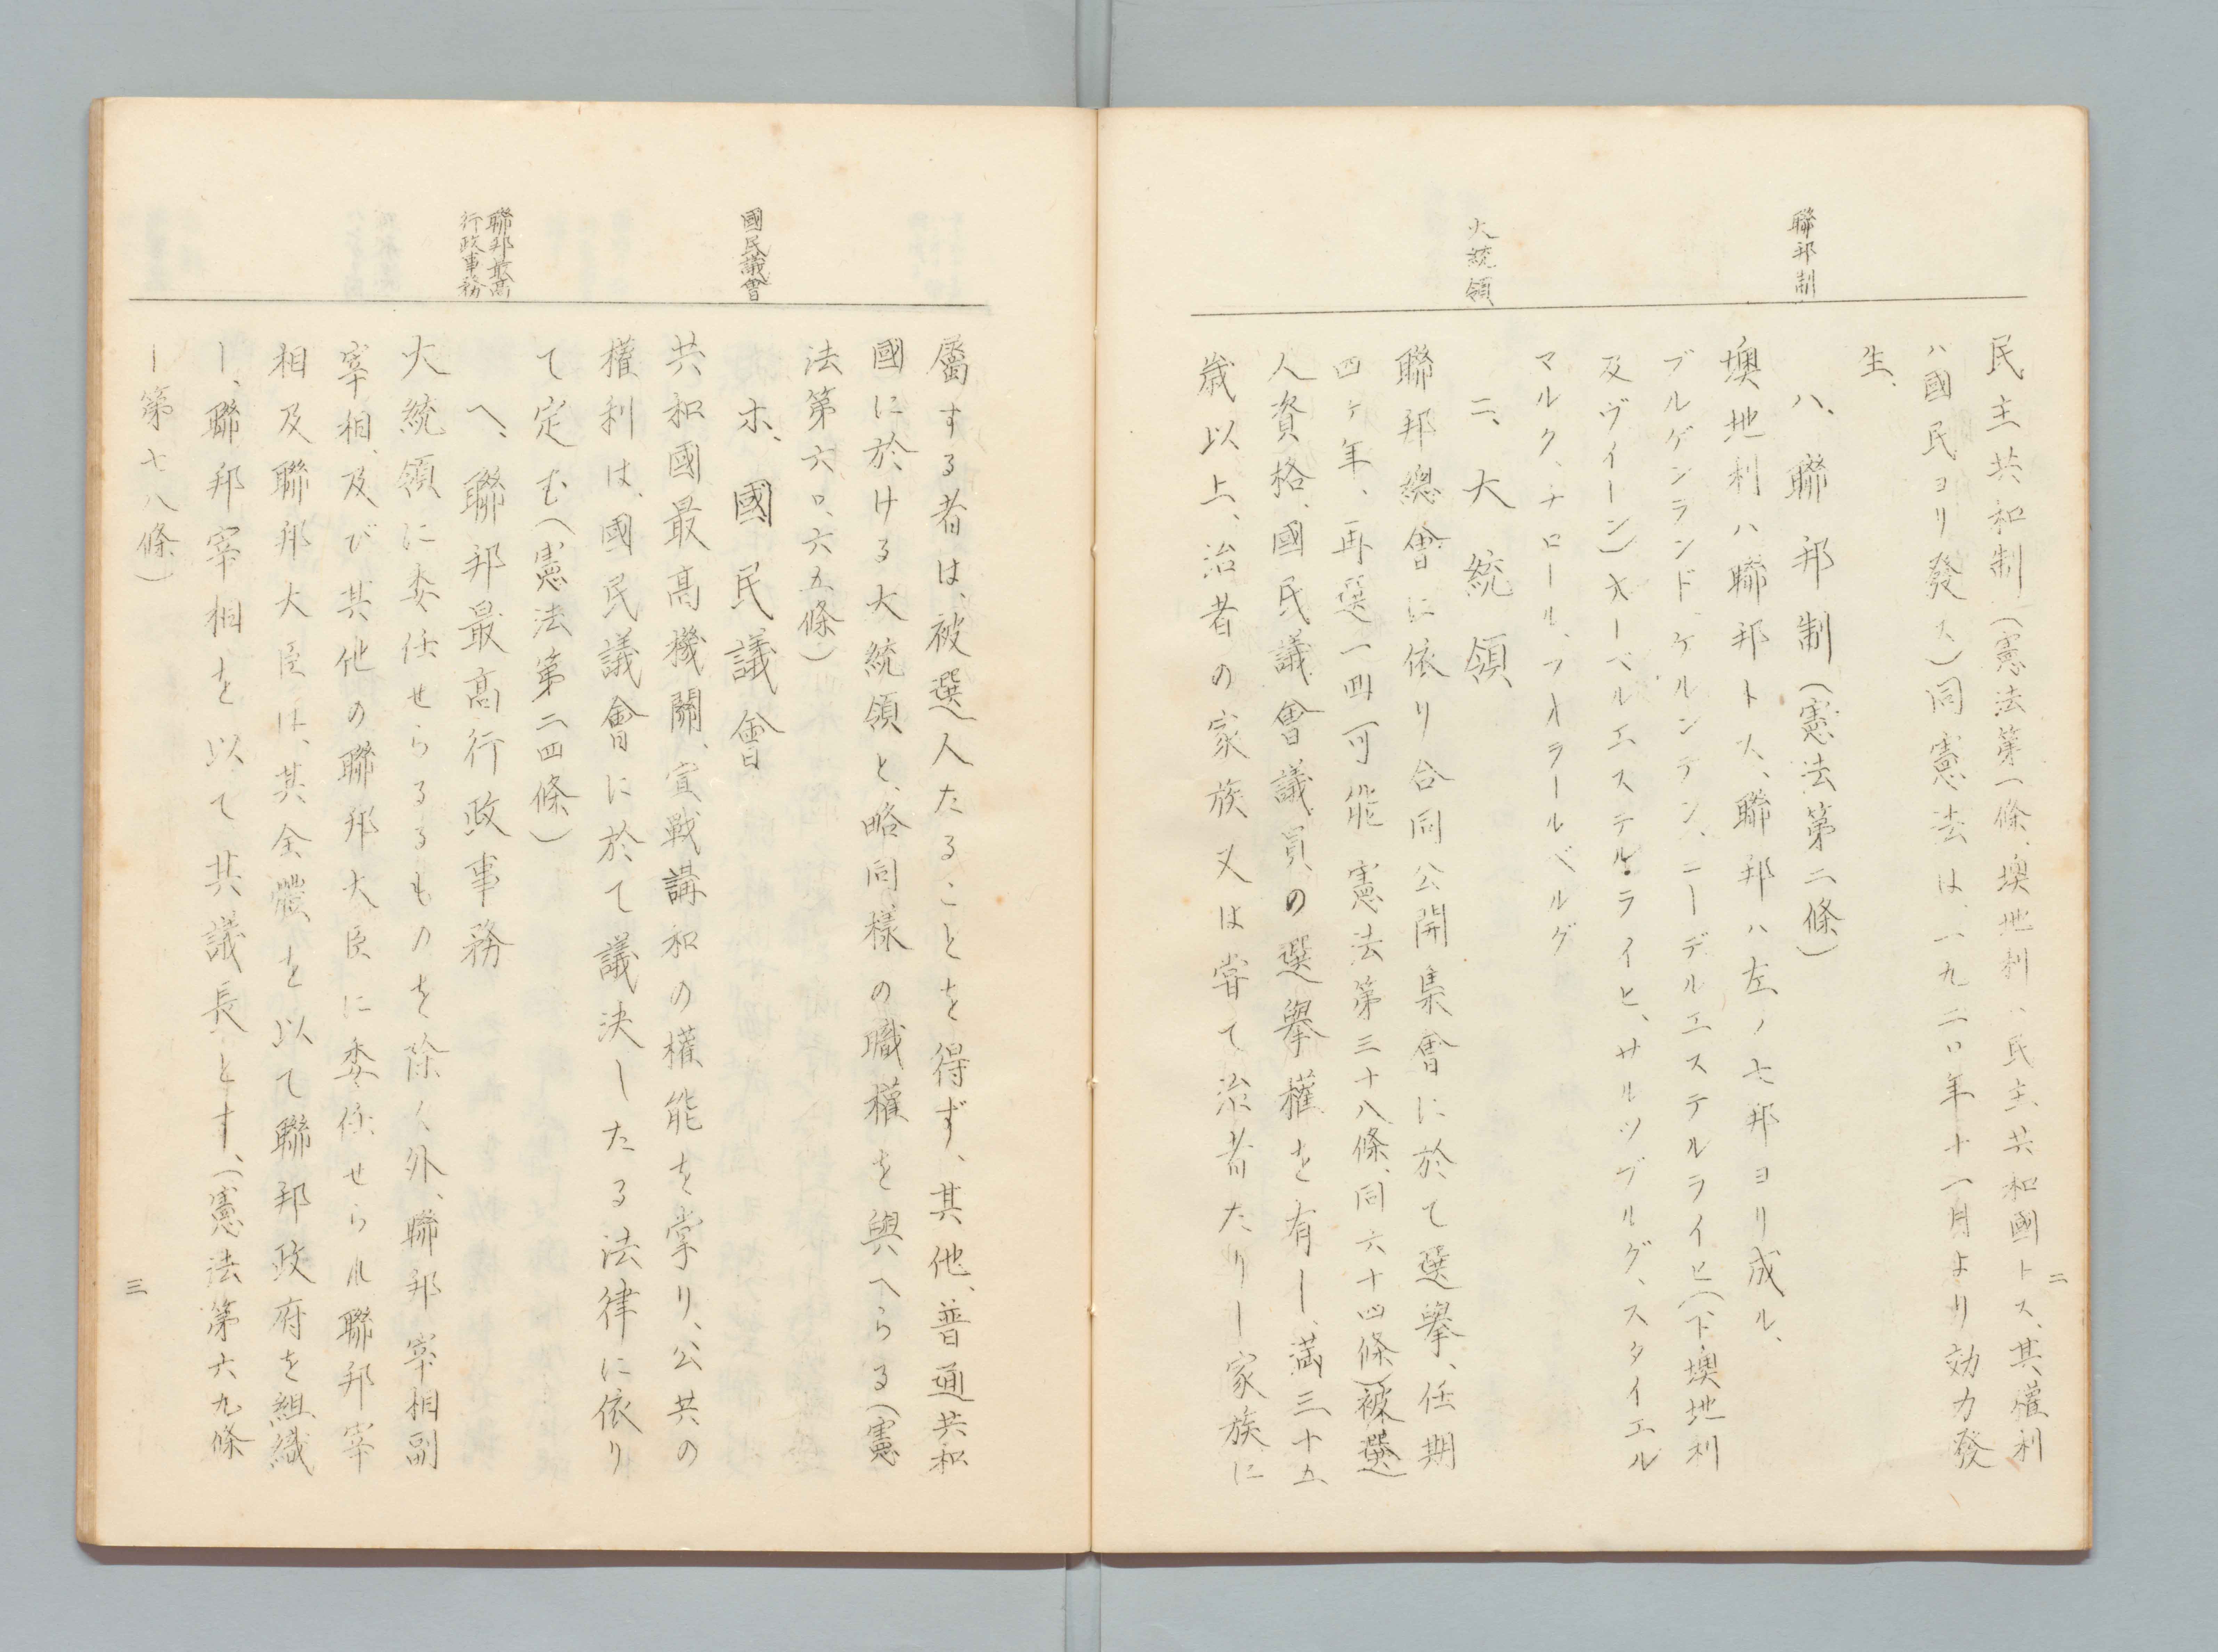 二
聯邦制
大統領
民主共和制(憲法第一條、墺地利ハ民主共和國トス、其權利
ハ國民ヨリ發ス)同憲法は、一九二〇年十一月より効力發
生、
ハ、聯邦制(憲法第二條)
墺地利ハ聯邦トス、聯邦ハ左ノ七邦ヨリ成ル、
ブルゲンランド、ケルンテン、ニーデルエステルライヒ(下墺地利
及ヴィーン)オーベルエステルライヒ、サルツブルグ、スタイエル
マルク、チロール、フオラールベルグ
ニ、大統領
聯邦總會に依り合同公開集會に於て選擧、任期
四ヶ年、再選一囘可能憲法第三十八條、同六十四條)被選
人資格、國民議會議員の選擧權を有し、満三十五
歳以上、治者の家族又は嘗て治者たりし家族に
國民議會
聯邦最高
行政事務
屬する者は、被選人たることを得ず、其他、普通共和
國に於ける大統領と、略同樣の職權を與へらる(憲
法第六〇、六五條)
ホ、國民議會
共和國最高機關、宣戰講和の權能を掌り、公共の
權利は、國民議會に於て議決したる法律に依り
て定む(憲法第二四條)
ヘ、聯邦最高行政事務
大統領に委任せらるるものを除く外、聯邦宰相副
宰相、及び其他の聯邦大臣に委任せらル聯邦宰
相及聯邦大臣は、其全體を以て聯邦政府を組織
し、聯邦宰相を以て其議長とす、(憲法第六九條
ー第七八條)
三